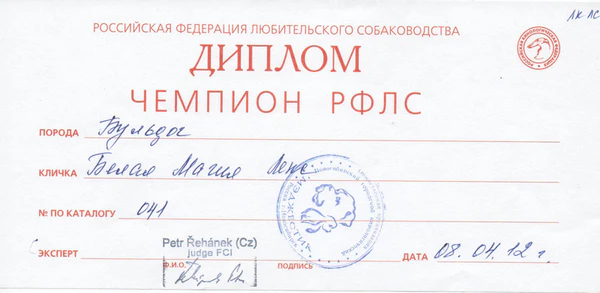 ЛК ЛС
РОССИЙСКАЯ ФЕДЕРАЦИЯ ЛЮБИТЕЛЬСКОГО СОБАКОВОДСТВА
ДИПЛОМ
ЧЕМПИОН РФЛС
ПОРОДА Бульдог
КЛИЧКА Белая Магия Лекс
№ ПО КАТАЛОГУ 041
МЭДЖЕСТИК
ЭКСПЕРТ Petr Řehánek (Cz)
judge FCI
Ф.И.О. ПОДПИСЬ
ДАТА 08.04.12 г.